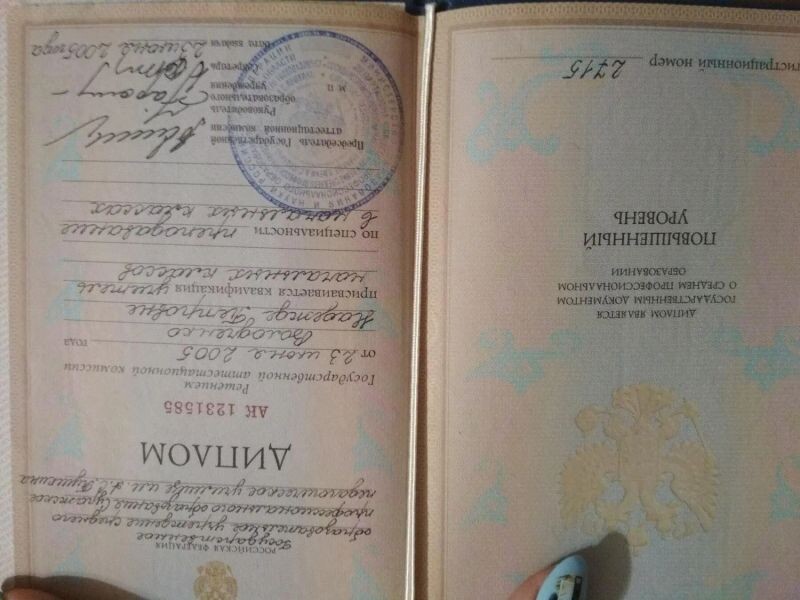 РОССИЙСКАЯ ФЕДЕРАЦИЯ
Государственное
образовательное учреждение среднего
профессионального образования Суражское
педагогическое училище им. А.С. Пушкина
ДИПЛОМ
АК 1231585
Решением
Государственной аттестационной комиссии
от 23 июня 2005 года
Володченко
Надежде Петровне
присваивается квалификация учитель
начальных классов
по специальности преподавание
в начальных классах
Председатель Государственной
аттестационной комиссии
Руководитель
образовательного
учреждения
Секретарь
М П
Дата выдачи 23 июня 2005 года
ДИПЛОМ ЯВЛЯЕТСЯ
ГОСУДАРСТВЕННЫМ ДОКУМЕНТОМ
О СРЕДНЕМ ПРОФЕССИОНАЛЬНОМ
ОБРАЗОВАНИИ
ПОВЫШЕННЫЙ
УРОВЕНЬ
гистрационный номер 2715